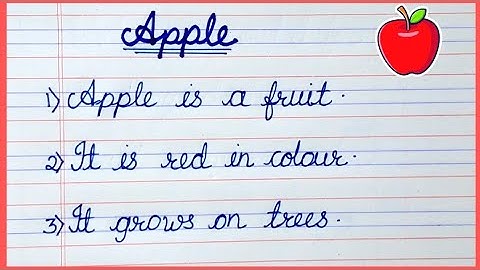 Apple
1) Apple is a fruit.
2) It is red in colour.
3) It grows on trees.